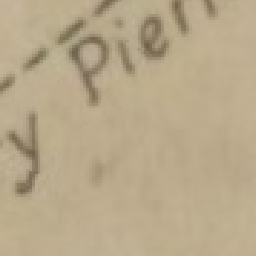 y Pier